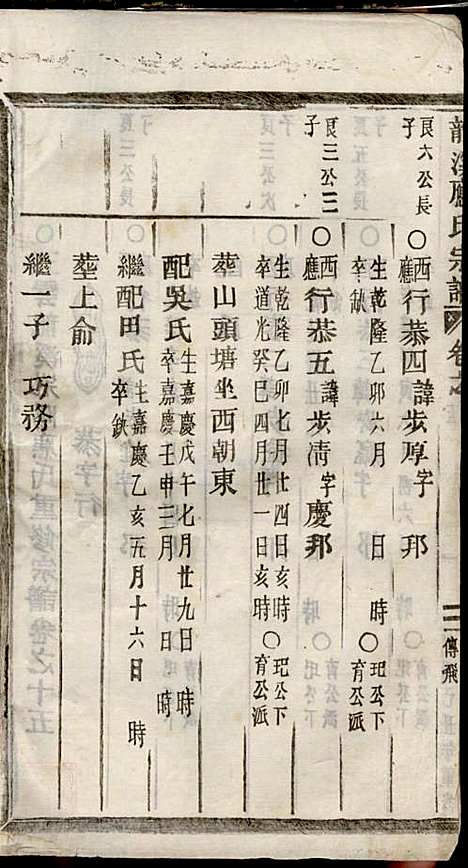 良六公長子
○西應行恭四諱步厚字 邦
生乾隆乙卯六月 日 時○玘公下
卒缺 育公派
良三公三子
○西應行恭五諱步清字慶邦
生乾隆乙卯七月廿四日亥時○玘公下
卒道光癸巳四月廿一日亥時 育公派
葬山頭塘坐西朝東
配吳氏生嘉慶戊午七月廿九日 時
卒嘉慶壬申三月 日 時
繼配田氏生嘉慶乙亥五月十六日 時
卒缺
葬上俞
繼一子 巧務